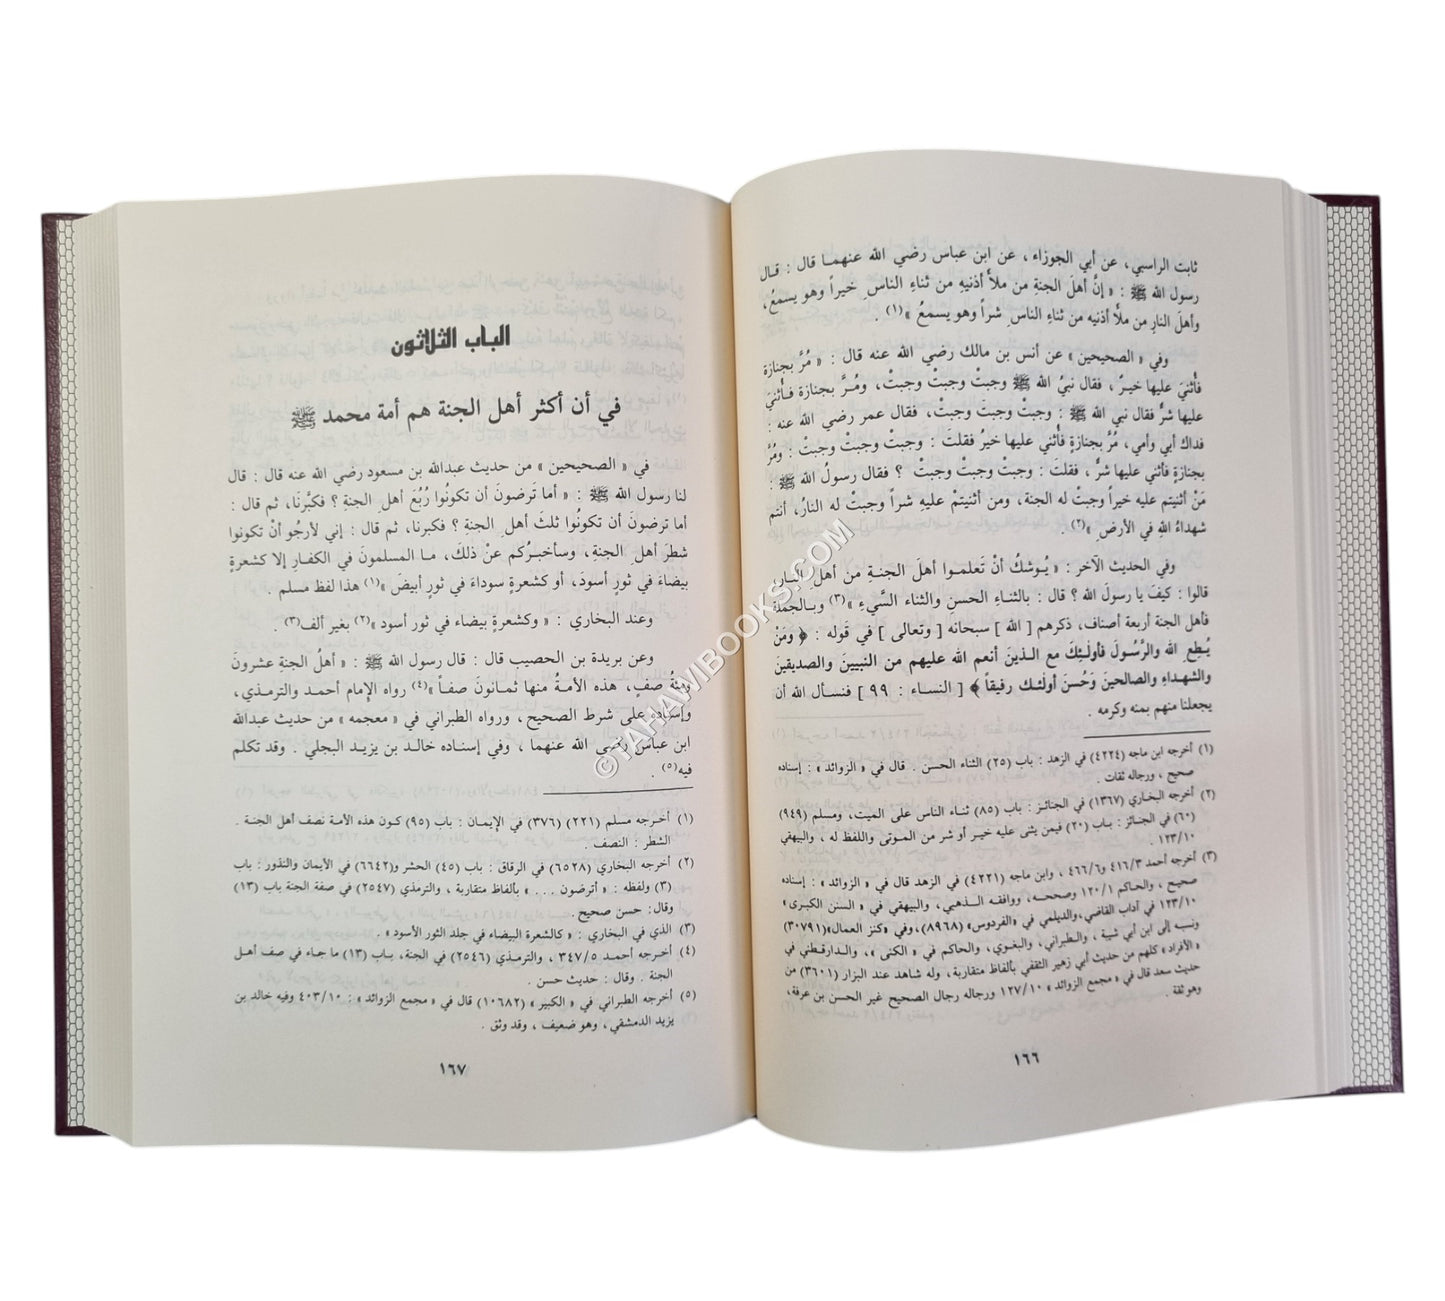 ثابت الراسبي، عن أبي الجوزاء، عن ابن عباس رضي الله عنهما قال : قال
رسول الله ﷺ : « إنَّ أهلَ الجنةِ من ملأَ أذنيهِ من ثناءِ الناسِ خيراً وهو يسمعُ،
وأهلَ النارِ من ملأَ أذنيه من ثناءِ الناسِ شراً وهو يسمعُ »(١) .
وفي « الصحيحين » عن أنس بن مالك رضي الله عنه قال : « مُرَّ بجنازة
فأُثنيَ عليها خيرٌ، فقال نبيُ الله ﷺ وجبتْ وجبتْ وجبتْ، ومُرَّ بجنازة فأُثنيَ
عليها شرٌّ فقال نبي الله ﷺ : وجبتْ وجبتَ وجبتْ، فقال عمر رضي الله عنه :
فداك أبي وأمي، مُرَّ بجنازةٍ فأُثني عليها خيرٌ فقلتَ : وجبتْ وجبتْ وجبتْ : ومُرَّ
بجنازةٍ فأُثني عليها شرٌ ، فقلتَ : وجبتْ وجبتْ وجبتْ ؟ فقال رسولُ الله ﷺ :
مَنْ أثنيتم عليه خيراً وجبتْ له الجنة، ومن أثنيتمْ عليه شراً وجبتْ له النارُ، أنتم
شهداءُ اللهِ في الأرضِ »(٢) .
وفي الحديث الآخر : « يُوشكُ أنْ تَعلموا أهلَ الجنةِ من أهلِ النارِ
قالوا : كيفَ يا رسول الله ؟ قال : بالثناءِ الحسنِ والثناء السَّيءِ »(٣) وبالجملة
فأهل الجنة أربعة أصناف، ذكرهم [ الله ] سبحانه [ وتعالى ] في قَوله : ﴿ وَمَنْ
يُطِعِ اللهَ والرَّسُولَ فأولَئِكَ مع الذينَ أنعم الله عليهم من النبيينَ والصديقينَ
والشهداءِ والصالحينَ وَحُسنَ أولَئك رفيقاً ﴾ [ النساء : ٩٩ ] فنسأل الله أن
يجعلنا منهم بمنه وكرمه .
(١) أخرجه ابن ماجه (٤٢٢٤) في الزهد : باب (٢٥) الثناء الحسن . قال في « الزوائد » : إسناده
صحيح ، ورجاله ثقات .
(٢) أخرجه البخاري (١٣٦٧) في الجنائز : باب (٨٥) ثناء الناس على الميت، ومسلم (٩٤٩)
(٦٠) في الجنائز : باب (٢٠) فيمن يثنى عليه خير أو شر من الموتى واللفظ له ، والبيهقي
١٢٣/١٠ .
(٣) أخرجه أحمد ٤١٦/٣ و٤٦٦/٦ ، وابن ماجه (٤٢٢١) في الزهد قال في « الزوائد » : إسناده
صحيح ، والحاكم ١٢٠/١ وصححه، ووافقه الذهبي، والبيهقي في « السنن الكبرى »
١٢٣/١٠ في آداب القاضي، والديلمي في «الفردوس» (٨٩٦٨)، وفي «كنز العمال» (٣٠٧٩١)
ونسبه إلى ابن أبي شيبة ، والطبراني، والبغوي، والحاكم في « الكنى »، والدارقطني في
« الأفراد » كلهم من حديث أبي زهير الثقفي بألفاظ متقاربة، وله شاهد عند البزار (٣٦٠١) من
حديث سعد قال في « مجمع الزوائد » ١٢٧/١٠ ورجاله رجال الصحيح غير الحسن بن عرفة،
وهو ثقة .
١٦٦
الباب الثلاثون
في أن أكثر أهل الجنة هم أمة محمد ﷺ
في « الصحيحين » من حديث عبدالله بن مسعود رضي الله عنه قال : قال
لنا رسول الله ﷺ : « أما تَرضونَ أن تكونُوا رُبُعَ أهلِ الجنةِ ؟ فكبَّرنَا، ثم قال :
أما ترضونَ أن تكونُوا ثلثَ أهلِ الجنةِ ؟ فكبرنا، ثم قال : إني لأرجُو أنْ تكونوا
شطرَ أهلِ الجنةِ، وسأخبرُكم عنْ ذلكَ، ما المسلمونَ في الكفارِ إلا كشعرةٍ
بيضاءَ في ثورٍ أسودَ، أو كشعرةٍ سوداءَ في ثورٍ أبيضَ »(١) هذا لفظ مسلم .
وعند البخاري : « وكشعرةٍ بيضاء في ثور أسود »(٢) بغير ألف(٣) .
وعن بريدة بن الحصيب قال : قال رسول الله ﷺ : « أهلُ الجنةِ عشرونَ
ومئةُ صفٍ، هذه الأمةُ منها ثمانونَ صفاً »(٤) رواه الإمام أحمد والترمذي،
وإسناده على شرط الصحيح، ورواه الطبراني في « معجمه » من حديث عبدالله
ابن عباس رضي الله عنهما ، وفي إسناده خالد بن يزيد البجلي . وقد تكلم
فيه(٥) .
(١) أخرجه مسلم (٢٢١) (٣٧٦) في الإيمان : باب (٩٥) كون هذه الأمة نصف أهل الجنة .
الشطر : النصف .
(٢) أخرجه البخاري (٦٥٢٨) في الرقاق : باب (٤٥) الحشر و(٦٦٤٢) في الأيمان والنذور : باب
(٣) ولفظه : « أترضون . . . » بألفاظ متقاربة ، والترمذي (٢٥٤٧) في صفة الجنة باب (١٣)
وقال: حسن صحيح .
(٣) الذي في البخاري : « كالشعرة البيضاء في جلد الثور الأسود » .
(٤) أخرجه أحمد ٣٤٧/٥ ، والترمذي (٢٥٤٦) في الجنة، باب (١٣) ما جاء في صف أهل
الجنة . وقال : حديث حسن .
(٥) أخرجه الطبراني في « الكبير » (١٠٦٨٢) قال في « مجمع الزوائد » : ٤٠٣/١٠ وفيه خالد بن
يزيد الدمشقي ، وهو ضعيف ، وقد وثق .
١٦٧
©TAHAMIBOOKS.COM